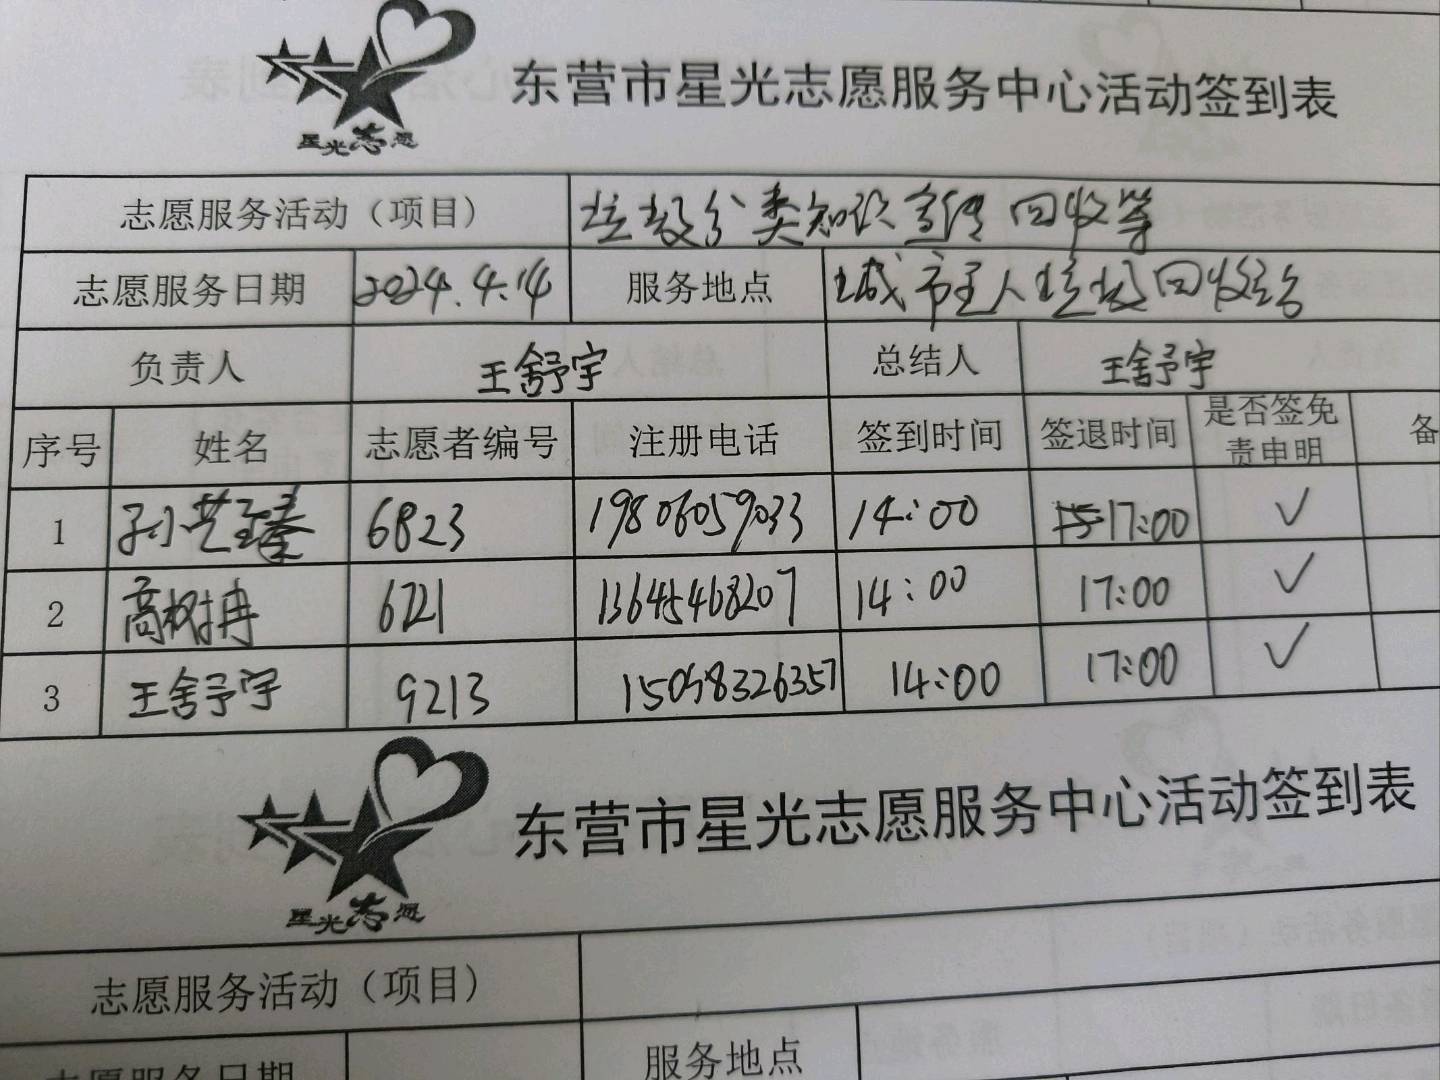 星光志愿
东营市星光志愿服务中心活动签到表
志愿服务活动（项目） 垃圾分类知识宣传 回收等
志愿服务日期 2024.4.14 服务地点 城市主人垃圾回收站
负责人 王舒宇 总结人 王舒宇
序号 姓名 志愿者编号 注册电话 签到时间 签退时间 是否签免责申明 备
1 孙艺臻 6823 19806059033 14:00 17:00 ✓
2 高树冉 6721 13645468207 14:00 17:00 ✓
3 王舒宇 9213 15058326357 14:00 17:00 ✓
星光志愿
东营市星光志愿服务中心活动签到表
志愿服务活动（项目）
志愿服务日期 服务地点